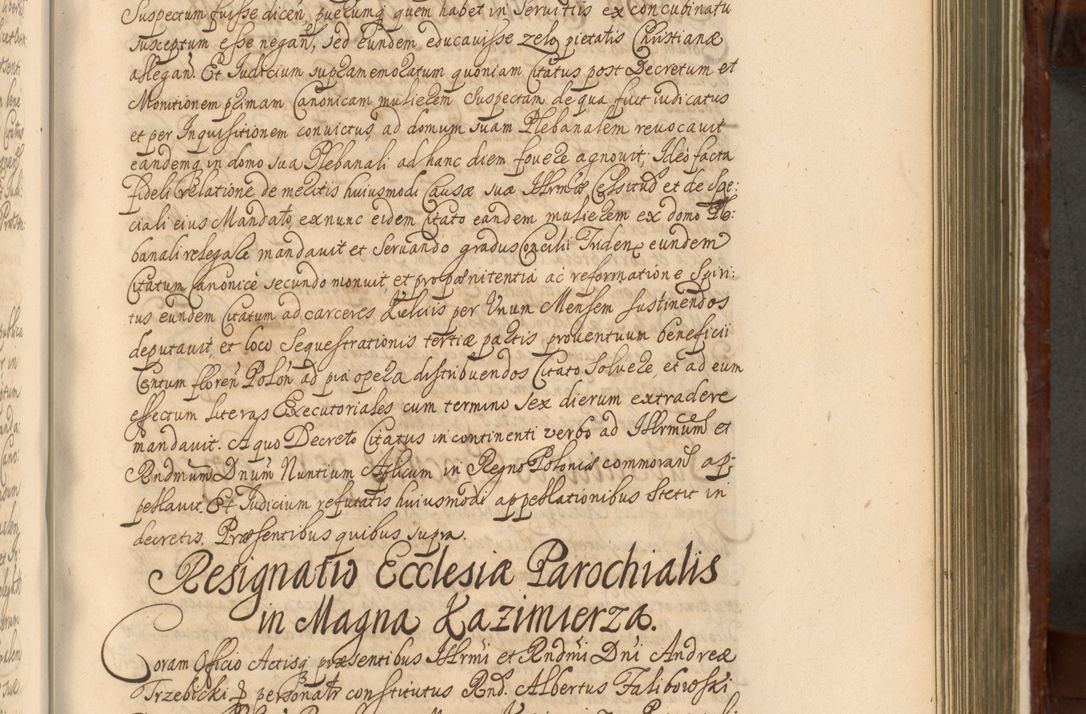 Suspectam fuisse dicen, puerumq quem habet in Servitiis ex concubinatu
susceptum esse negan, sed eundem educavisse zelo pietatis Christianæ
allegan. Et Iudicium supramemoratum quoniam Citatus post Decretum et
Monitionem primam Canonicam mulierem suspectam de qua fuit iudicatus
et per Inquisitionem convictus ad domum suam Plebanalem revocavit
eandemq in domo sua Plebanali ad hanc diem fovere agnovit; Ideo facta
fideli relatione de meritis huiusmodi Causæ suæ Illrmæ Celsitud et de Spe:
ciali eius Mandato, ex nunc eidem Citato eandem mulierem ex domo Ple:
banali relegare mandavit et servando gradus Concilii Triden eundem
Citatum Canonicè secundo monuit, et pro pœnitentia ac reformatione Spiri:
tus eundem Citatum ad carceres Kielciis per Unum Mensem sustinendos
deputavit, et loco sequestrationis tertiæ partis proventuum beneficii
Centum floren Polon ad pia opera distribuendos Citato solvere, et ad eum
effectum literas Executoriales cum termino sex dierum extradere
mandavit. A quo Decreto Citatus in continenti verbo ad Illrmum et
Rndmum Dnum Nuntium Aplicum in Regno Poloniæ commoran ap:
pellavit. Et Iudicium refutatis huiusmodi appellationibus stetit in
decretis. Præsentibus quibus supra.
Resignatio Ecclesiæ Parochialis
in Magna Kazimierza.
Coram Officio Actisq præsentibus Illrmi et Rndmi Dni Andreæ
Trzebicki personalr constitutus Rnd. Albertus Falibowski